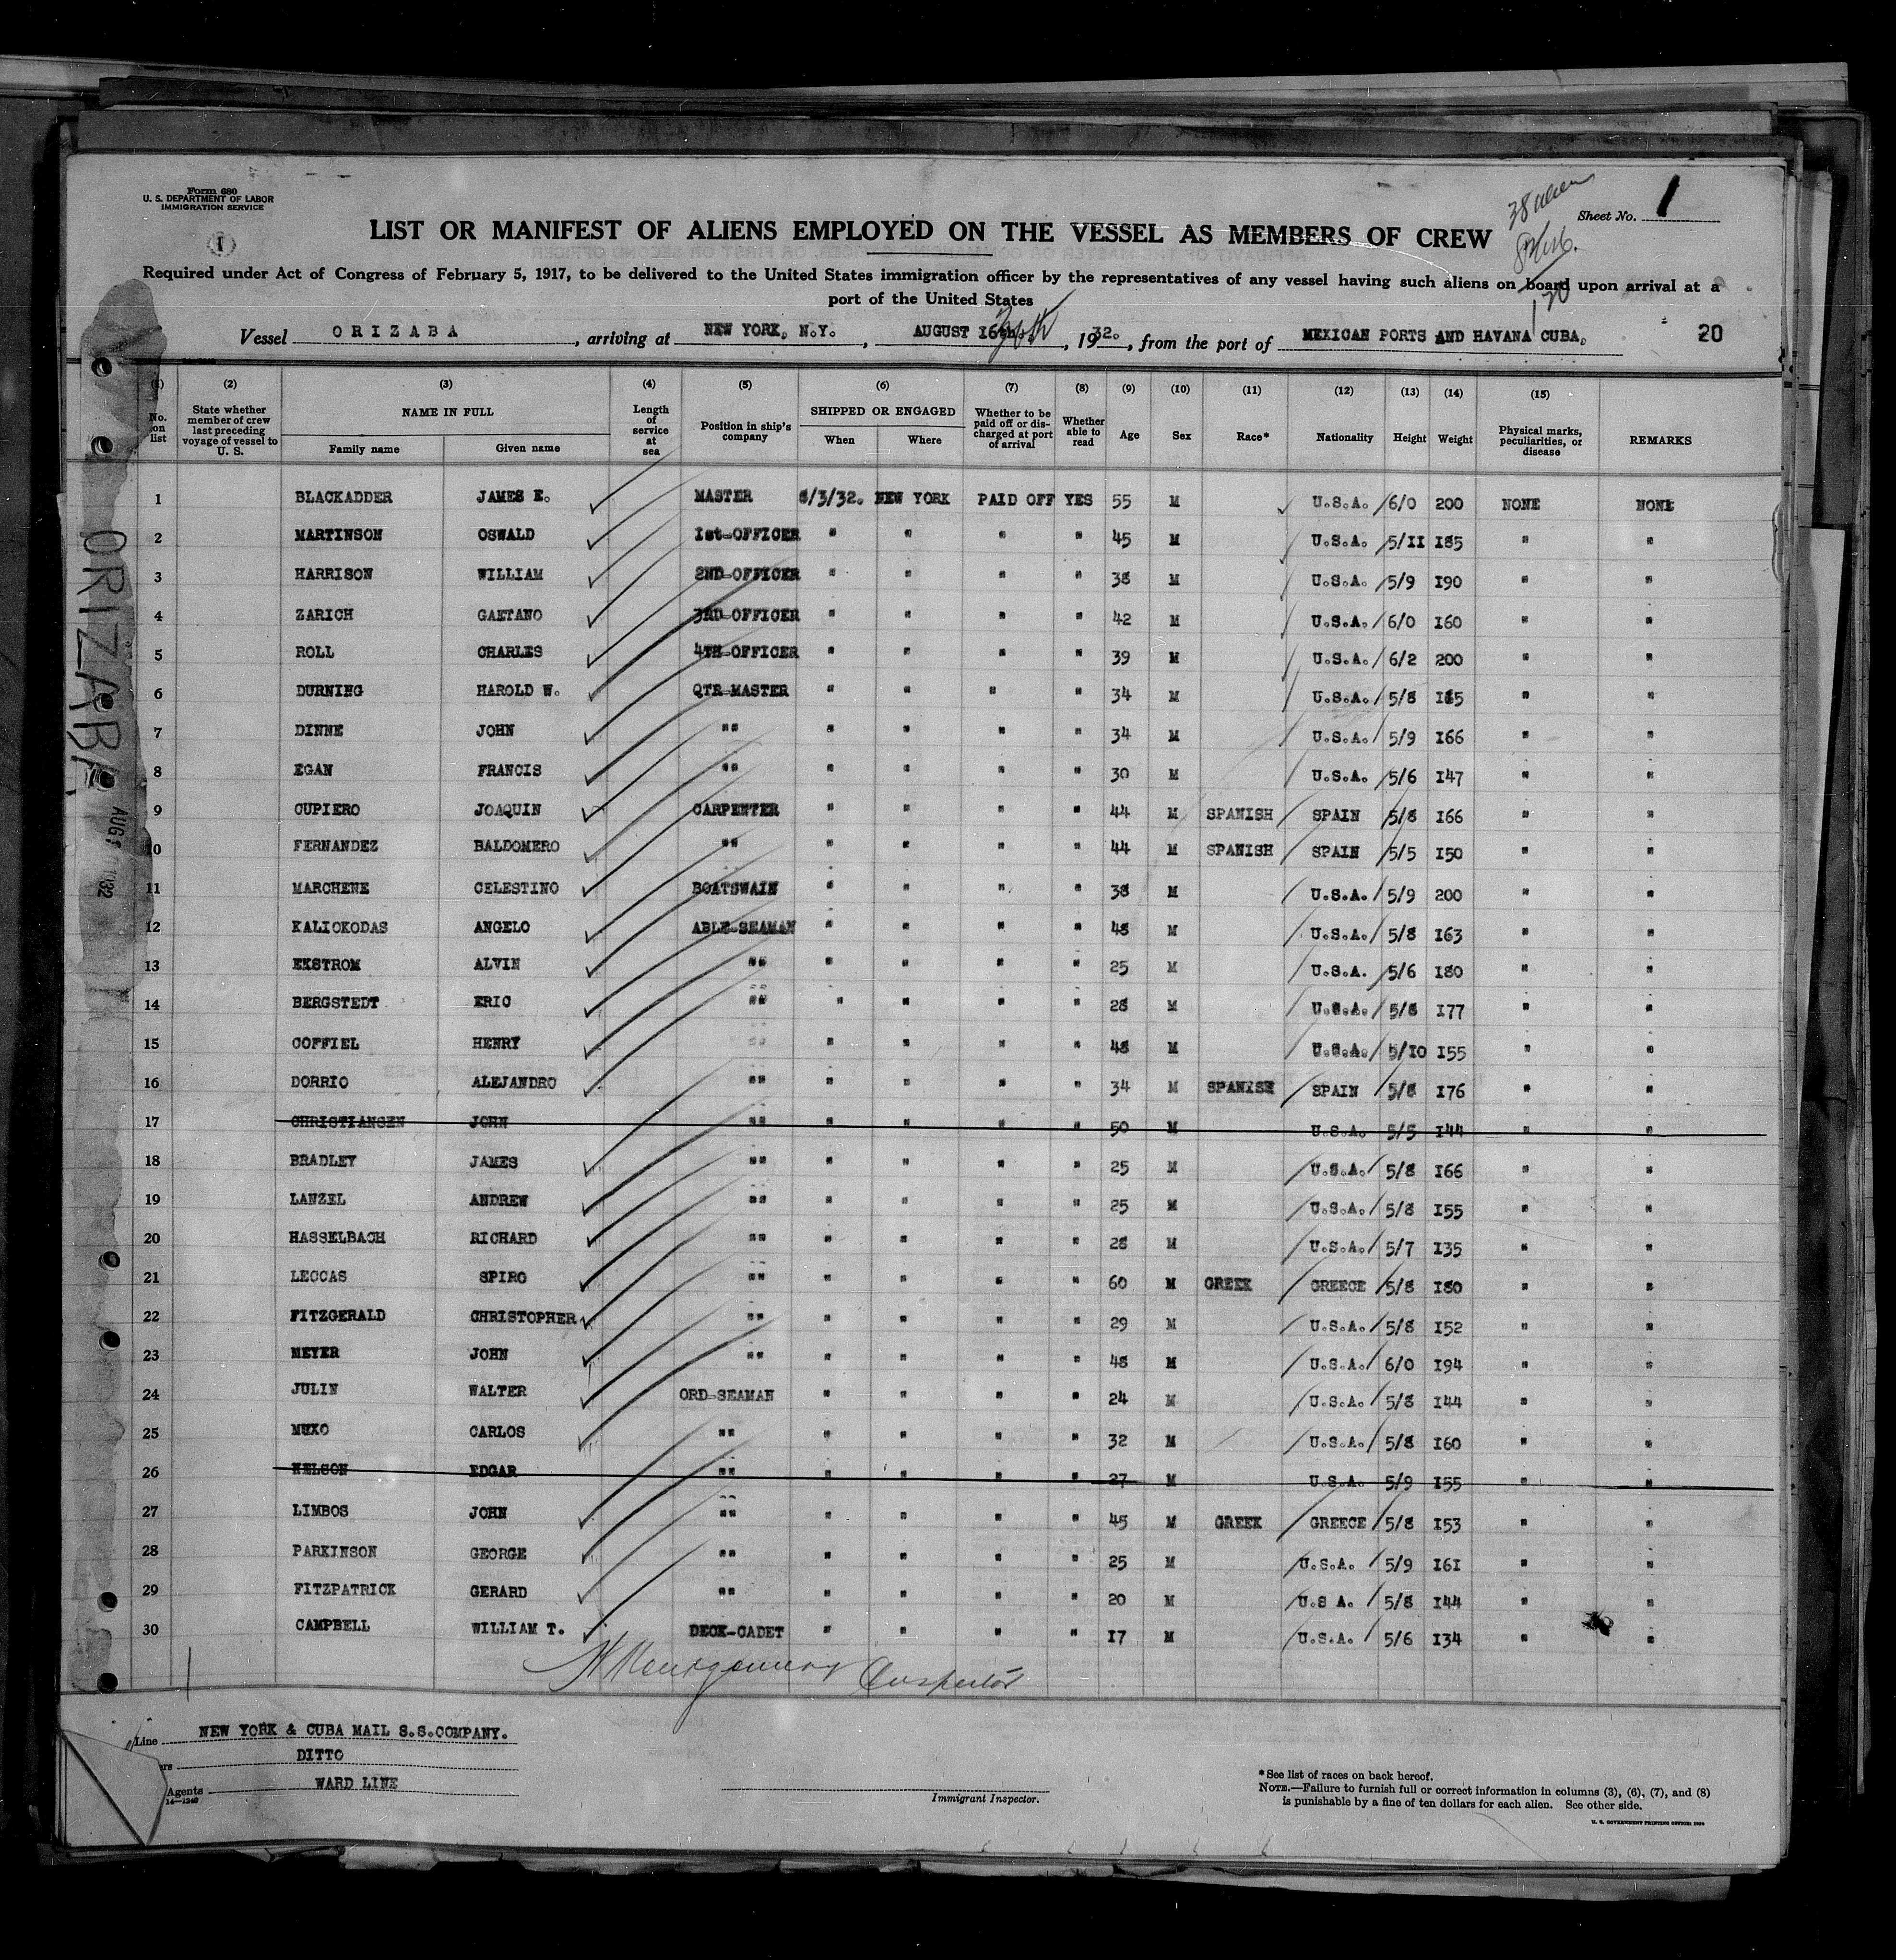 Form 680
U. S. DEPARTMENT OF LABOR
IMMIGRATION SERVICE
(1)
LIST OR MANIFEST OF ALIENS EMPLOYED ON THE VESSEL AS MEMBERS OF CREW
38 aliens
Sheet No. 1
Required under Act of Congress of February 5, 1917, to be delivered to the United States immigration officer by the representatives of any vessel having such aliens on board upon arrival at a
port of the United States
120
Vessel ORIZABA, arriving at NEW YORK, N.Y., AUGUST 16th, 1932., from the port of MEXICAN PORTS AND HAVANA CUBA. 20
(1) (2) (3) (4) (5) (6) (7) (8) (9) (10) (11) (12) (13) (14) (15)
No. on list State whether member of crew last preceding voyage of vessel to U. S. NAME IN FULL Family name Given name Length of service at sea Position in ship's company SHIPPED OR ENGAGED When Where Whether to be paid off or discharged at port of arrival Whether able to read Age Sex Race* Nationality Height Weight Physical marks, peculiarities, or disease REMARKS
1 BLACKADDER JAMES E. MASTER 8/3/32. NEW YORK PAID OFF YES 55 M U.S.A. 6/0 200 NONE NONE
2 MARTINSON OSWALD Ist-OFFICER " " " " 45 M U.S.A. 5/II I85 " "
3 HARRISON WILLIAM 2ND-OFFICER " " " " 38 M U.S.A. 5/9 I90 " "
4 ZARICH GAETANO 3RD-OFFICER " " " " 42 M U.S.A. 6/0 I60 " "
5 ROLL CHARLES 4TH-OFFICER " " " " 39 M U.S.A. 6/2 200 " "
6 DURNING HAROLD W. QTR-MASTER " " " " 34 M U.S.A. 5/8 " "
7 DINNE JOHN "" " " " " 34 M U.S.A. 5/9 I66 " "
8 EGAN FRANCIS "" " " " " 30 M U.S.A. 5/6 I47 " "
9 CUPIERO JOAQUIN CARPENTER " " " " 44 M SPANISH SPAIN 5/8 I66 " "
10 FERNANDEZ BALDOMERO "" " " " " 44 M SPANISH SPAIN 5/5 I50 " "
11 MARCHENE CELESTINO BOATSWAIN " " " " 38 M U.S.A. 5/9 200 " "
12 KALICKODAS ANGELO ABLE-SEAMAN " " " " 48 M U.S.A. 5/8 I63 " "
13 EKSTROM ALVIN "" " " " " 25 M U.S.A. 5/6 I80 " "
14 BERGSTEDT ERIC "" " " " " 28 M U.S.A. 5/8 I77 " "
15 COFFIEL HENRY "" " " " " 48 M U.S.A. 5/I0 I55 " "
16 DORRIO ALEJANDRO "" " " " " 34 M SPANISH SPAIN 5/8 I76 " "
17 CHRISTIANSEN JOHN "" " " " " 50 M U.S.A. 5/5 I44 " "
18 BRADLEY JAMES "" " " " " 25 M U.S.A. 5/8 I66 " "
19 LANZEL ANDREW "" " " " " 25 M U.S.A. 5/8 I55 " "
20 HASSELBACH RICHARD "" " " " " 28 M U.S.A. 5/7 I35 " "
21 LECCAS SPIRO "" " " " " 60 M GREEK GREECE 5/8 I80 " "
22 FITZGERALD CHRISTOPHER "" " " " " 29 M U.S.A. 5/8 I52 " "
23 MEYER JOHN "" " " " " 48 M U.S.A. 6/0 I94 " "
24 JULIN WALTER ORD-SEAMAN " " " " 24 M U.S.A. 5/8 I44 " "
25 MUXO CARLOS "" " " " " 32 M U.S.A. 5/8 I60 " "
26 NELSON EDGAR "" " " " " 27 M U.S.A. 5/9 I55 " "
27 LIMBOS JOHN "" " " " " 45 M GREEK GREECE 5/8 I53 " "
28 PARKINSON GEORGE "" " " " " 25 M U.S.A. 5/9 I6I " "
29 FITZPATRICK GERARD "" " " " " 20 M U.S A. 5/8 I44 " "
30 CAMPBELL WILLIAM T. DECK-CADET " " " " I7 M U.S.A. 5/6 I34 " "
Montgomery Inspector
ORIZABA
AUG 1932
Line NEW YORK & CUBA MAIL S.S.COMPANY.
DITTO
Agents WARD LINE
14—1240
Immigrant Inspector.
*See list of races on back hereof.
NOTE.—Failure to furnish full or correct information in columns (3), (6), (7), and (8)
is punishable by a fine of ten dollars for each alien. See other side.
U. S. GOVERNMENT PRINTING OFFICE: